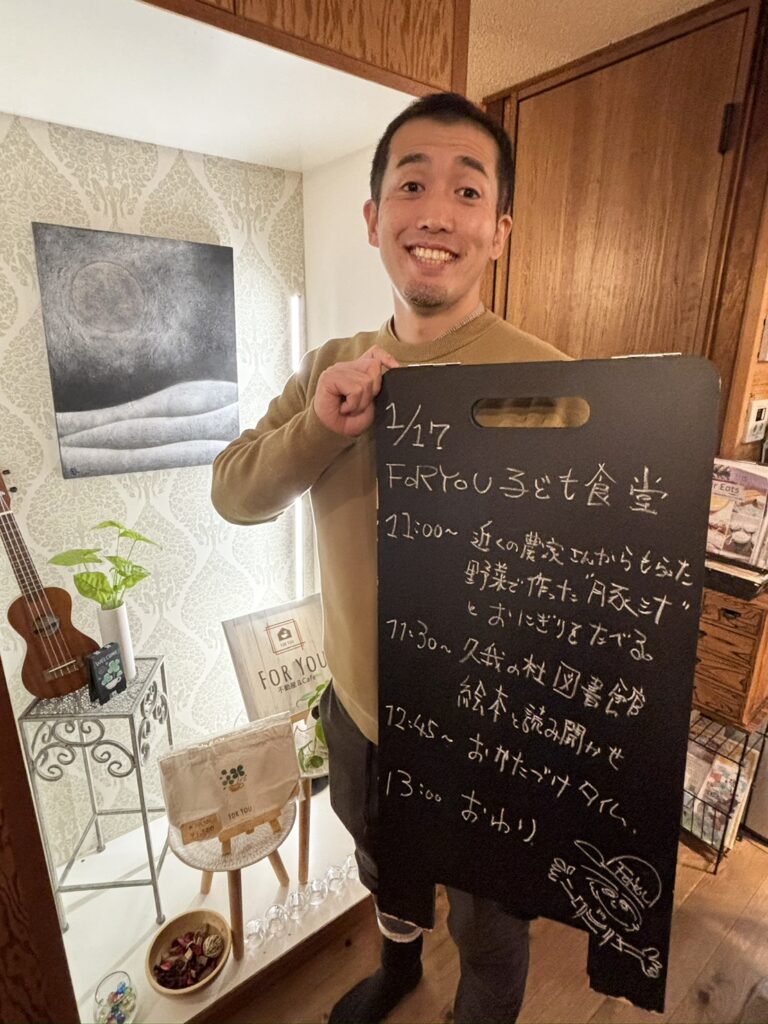 1/17
FORYOU 子ども食堂
11:00~ 近くの農家さんからもらった
野菜で作った"豚ミ汁"
とおにぎりをたべる。
11:30~ 久我の杜図書館
絵本と読み聞かせ
12:45~ おかたづけタイム、
13:00 おわり.
Foku
FOR YOU
不動産&Cafe
FOR YOU